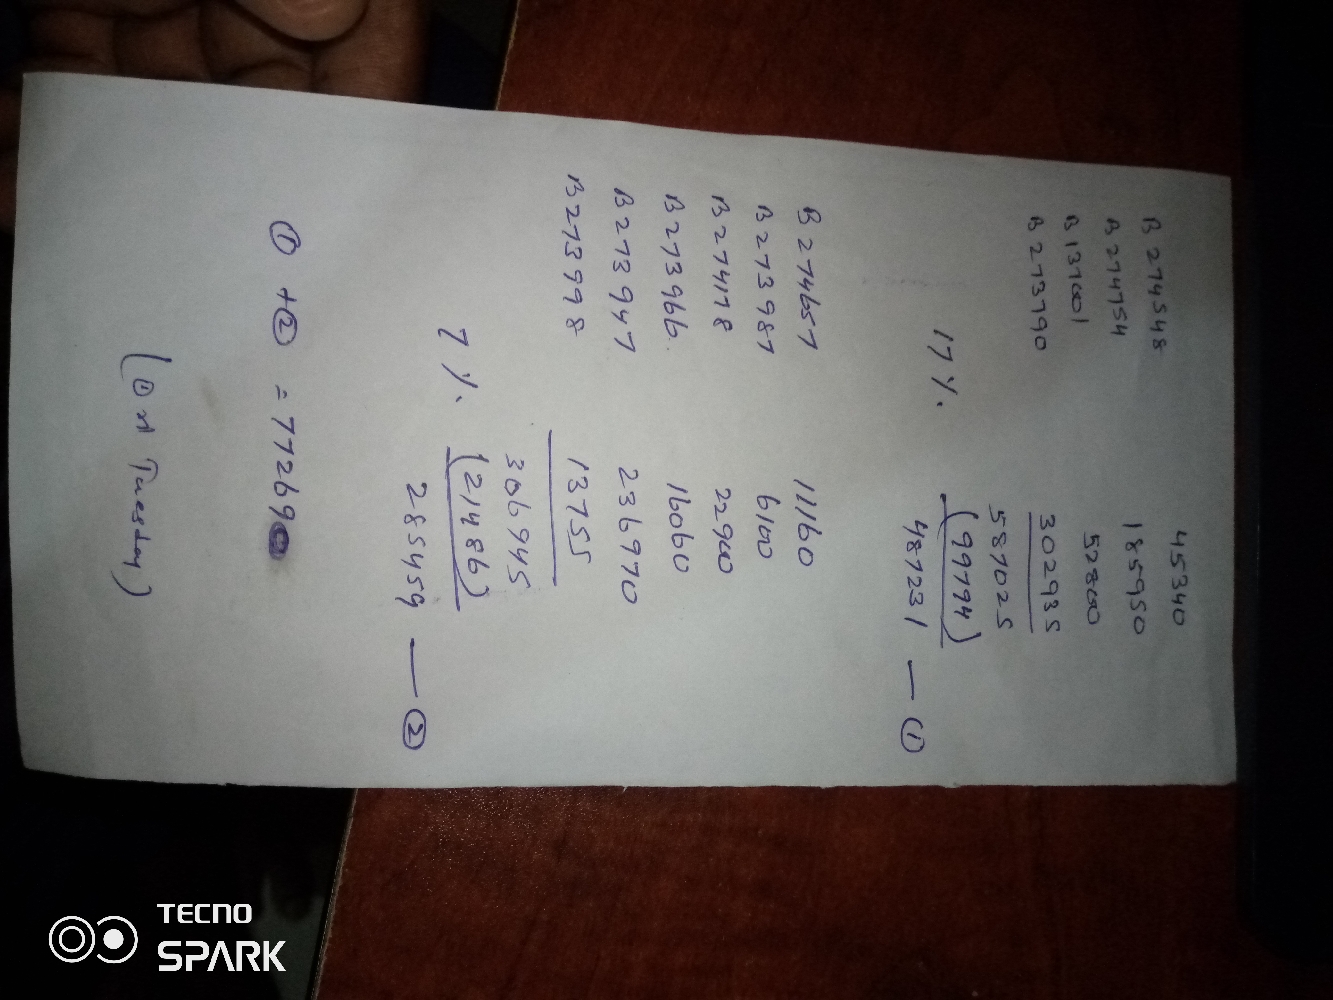 B 274548 45340
B 274754 185950
B 137001 52800
B 273790 302935
587025
17 %. (99794)
487231 — ①
B 274657 11160
B 273987 6100
B 274178 22900
B 273966 16060
B 273947 236970
B 273998 13755
306945
7 %. (21486)
285459 — ②
① + ② = 772690
(On Tuesday)
TECNO
SPARK